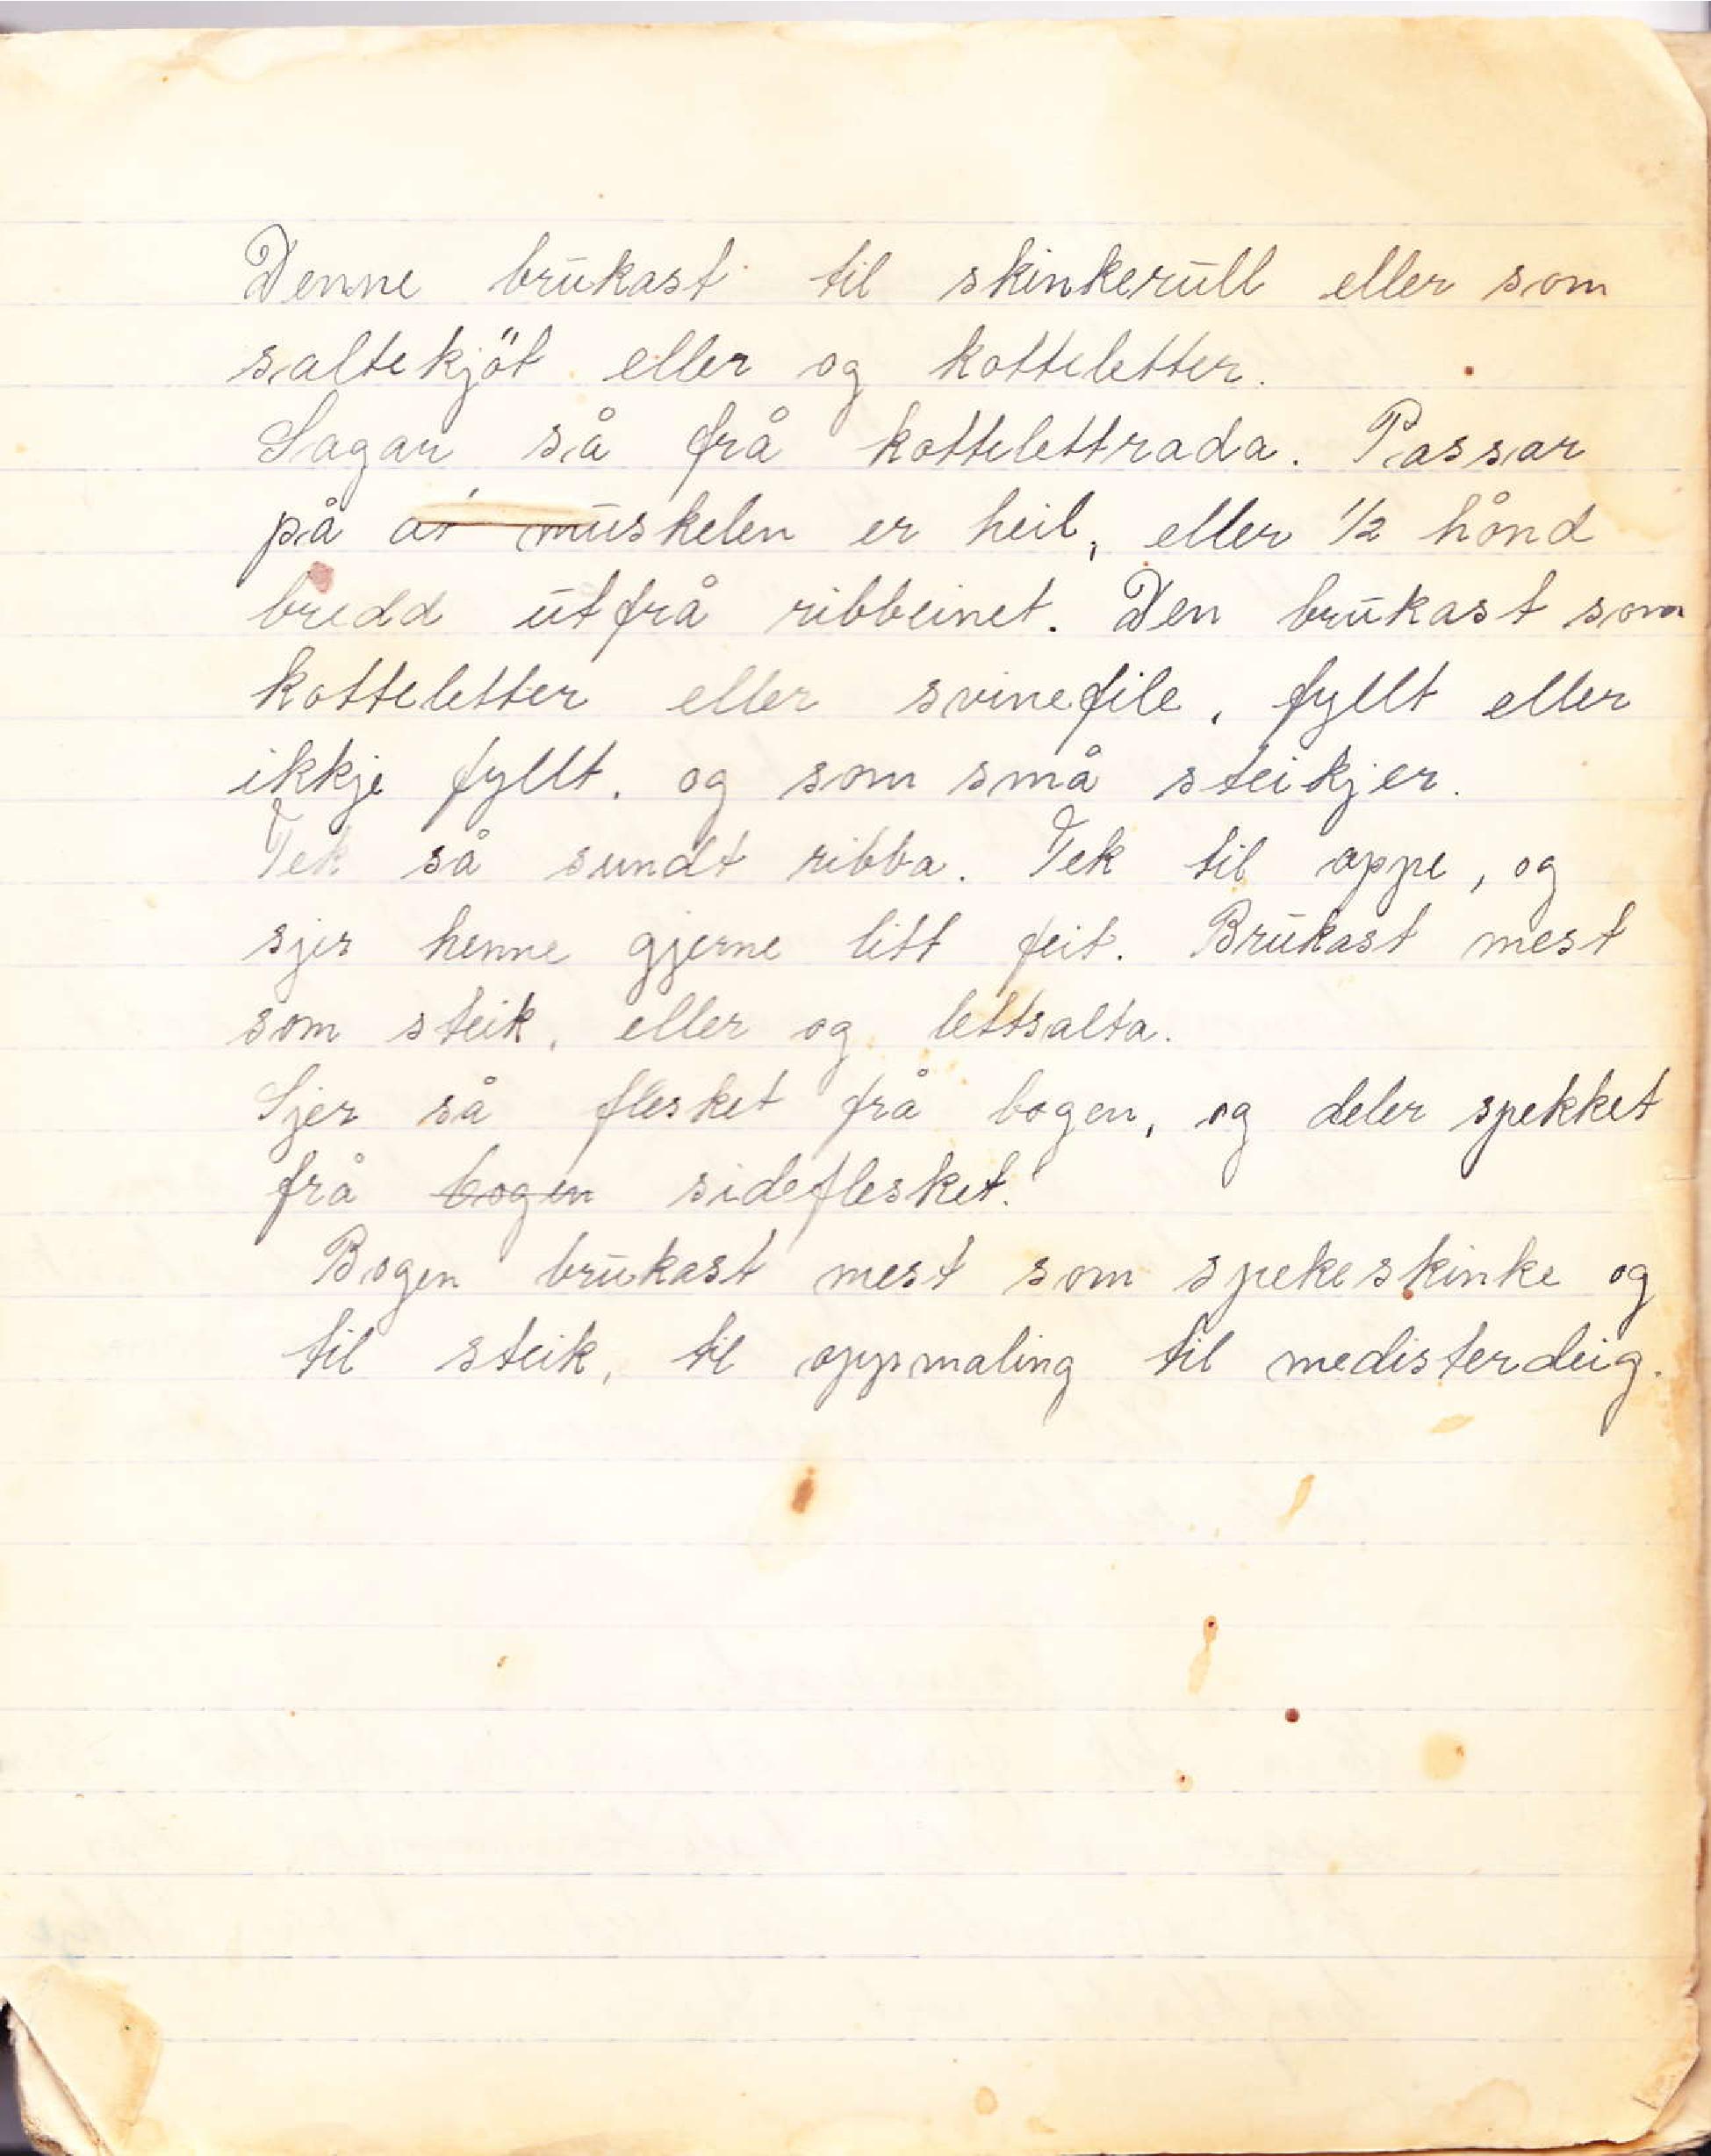 Denne brukast til skinkerull eller som
saltekjöt eller og kotteletter.
Sagar så frå kottelettrada. Passar
på at muskelen er heil, eller 1/2 hånd
bredd utfrå ribbeinet. Den brukast som
kotteletter eller svinefile, fyllt eller
ikkje fyllt, og som små steikjer.
Tek så sundt ribba. Tek til oppe, og
sjer henne gjerne litt feit. Brukast mest
som steik, eller og lettsalta.
Sjer så flesket frå bogen, og deler spekket
frå bogen sideflesket.
Bogen brukast mest som spekeskinke og
til steik, til oppmaling til medisterdeig.